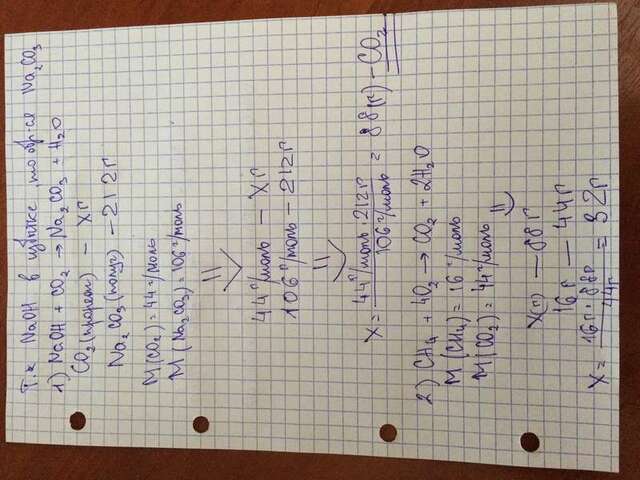 Т.к NaOH в избытке, то обр-ся Na₂CO₃
1) NaOH + CO₂ → Na₂CO₃ + H₂O
CO₂ (прореаг) – Xг
Na₂CO₃ (получ) – 212г
M(CO₂) = 44 г/моль
M(Na₂CO₃) = 106 г/моль
44 г/моль – Xг
106 г/моль – 212г
X = 44 г/моль · 212г / 106 г/моль = 88(г) – CO₂
2) CH₄ + 4O₂ → CO₂ + 2H₂O
M(CH₄) = 16 г/моль
M(CO₂) = 44 г/моль
X(г) – 88г
16г – 44г
X = 16г · 88г / 44г = 32г